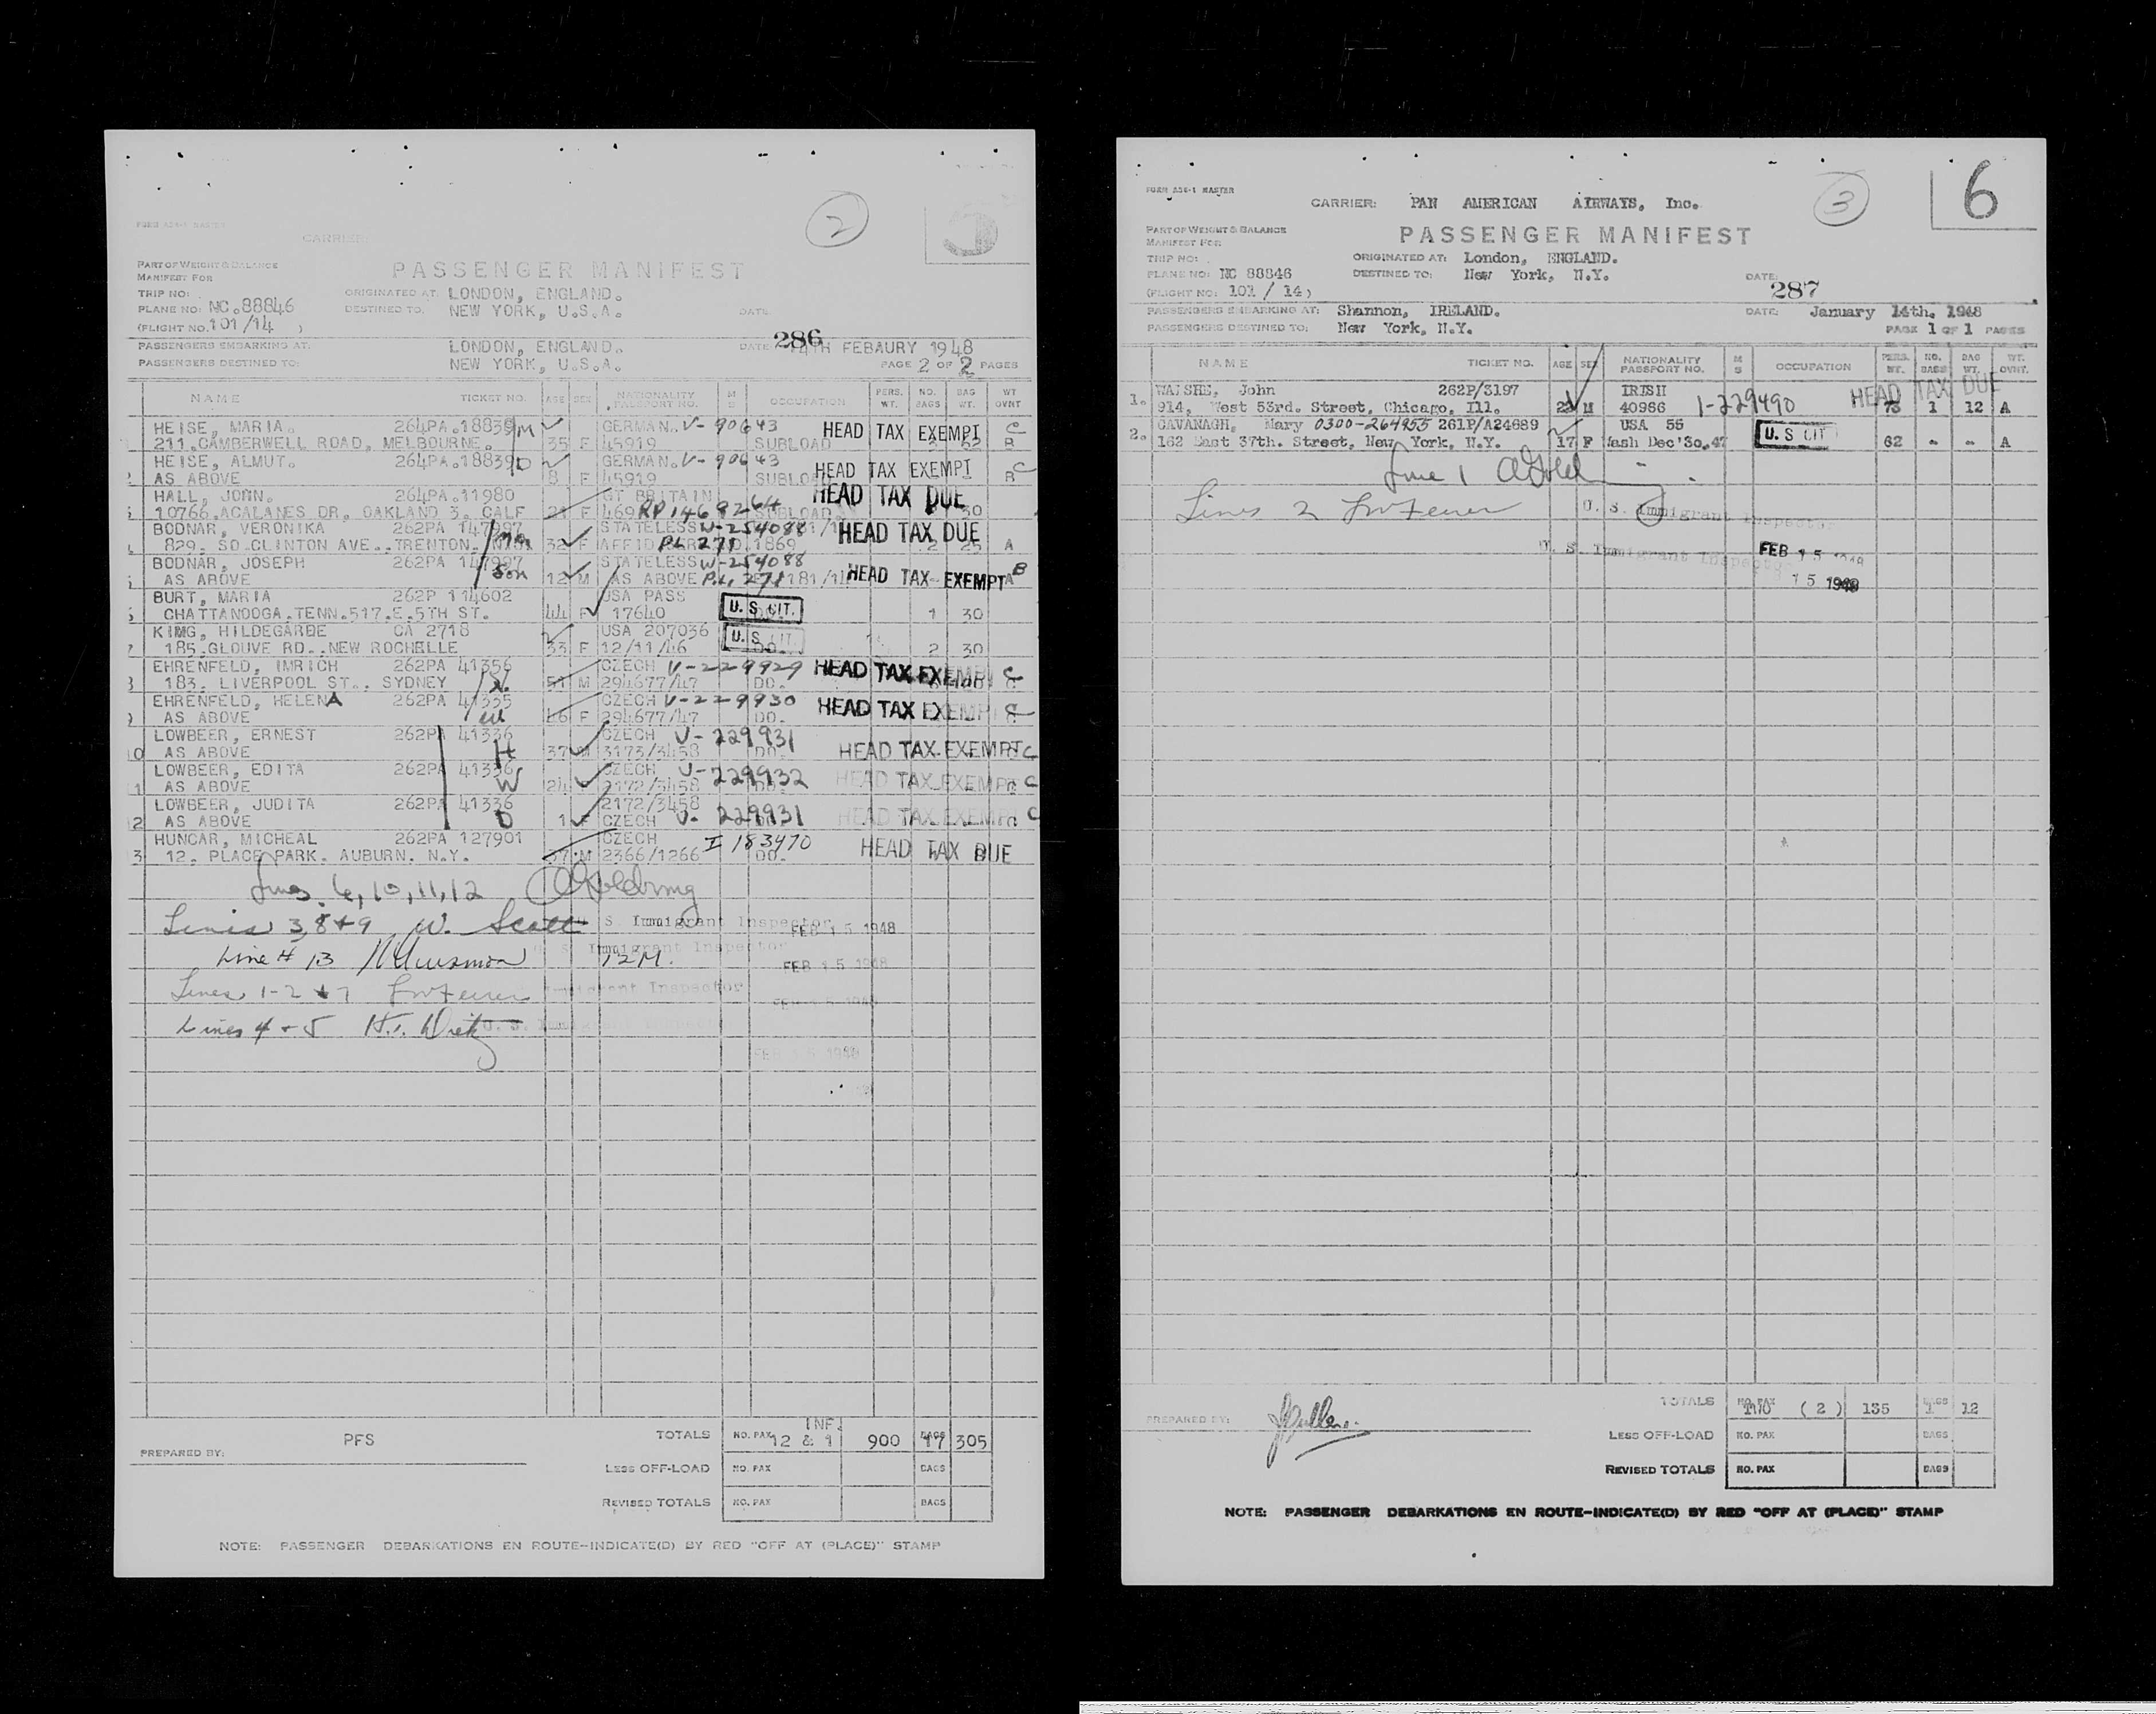 2
FORM ASE-1 MASTER
CARRIER:
PART OF WEIGHT & BALANCE
MANIFEST FOR
PASSENGER MANIFEST
TRIP NO:
ORIGINATED AT: LONDON, ENGLAND.
PLANE NO: NC.88846
DESTINED TO: NEW YORK, U.S.A.
DATE
(FLIGHT NO. 101/14 )
286
PASSENGERS EMBARKING AT: LONDON, ENGLAND.
DATE 14TH FEBAURY 1948
PASSENGERS DESTINED TO: NEW YORK, U.S.A.
PAGE 2 OF 2 PAGES
NAME TICKET NO. AGE SEX NATIONALITY PASSPORT NO. M S OCCUPATION PERS. WT. NO. BAGS BAG WT. WT OVNT
HEISE, MARIA. 264PA.18839 M GERMAN. V-90643 HEAD TAX EXEMPT C
211.CAMBERWELL ROAD, MELBOURNE. 35 F 45919 SUBLOAD B
HEISE, ALMUT. 264PA.18839 D GERMAN. V-90643 HEAD TAX EXEMPT C
2 AS ABOVE 8 F 45919 SUBLOAD B
HALL, JOHN. 264PA.11980 GT BRITAIN HEAD TAX DUE
10766.ACALANES DR, OAKLAND 3. CALF F 469 RP 1468264 SUBLOAD 30
BODNAR, VERONIKA 262PA 147997 STATELESS W-254088 HEAD TAX DUE
829. SO.CLINTON AVE., TRENTON. 32 F AFFID PL 271 1869 2 25 A
BODNAR, JOSEPH 262PA 147997 STATELESS W-254088
AS ABOVE Son 12 M AS ABOVE P.L. 271 HEAD TAX EXEMPT B
BURT, MARIA 262P 114602 USA PASS
CHATTANOOGA.TENN.517.E.5TH ST. 44 F 17640 U.S. CIT. 1 30
KING, HILDEGARDE CA 2718 USA 207036
7 185.GLOUVE RD..NEW ROCHELLE 33 F 12/11/46 U.S. CIT. 2 30
EHRENFELD, IMRICH 262PA 41356 CZECH V-229929 HEAD TAX EXEMPT C
183. LIVERPOOL ST., SYDNEY 51 M 294677/47 DO.
EHRENFELD, HELENA 262PA 41335 CZECH V-229930 HEAD TAX EXEMPT C
AS ABOVE W 46 F 294677/47 DO.
LOWBEER, ERNEST 262PA 41336 CZECH V-229931
10 AS ABOVE H 37 M 3173/3458 DO. HEAD TAX EXEMPT C
LOWBEER, EDITA 262PA 41336 CZECH V-229932
AS ABOVE W 24 2172/3458 DO. HEAD TAX EXEMPT C
LOWBEER, JUDITA 262PA 41336 2172/3458
12 AS ABOVE D 1 F CZECH V- 229931 HEAD TAX EXEMPT C
HUNCAR, MICHEAL 262PA 127901 CZECH I 183470
3 12. PLACE PARK. AUBURN. N.Y. 57 M 2366/1266 DO. HEAD TAX DUE
Lines 6,10,11,12
Lines 3,8+9 W. Scott U. S. Immigrant Inspector FEB 15 1948
Line # 13 U. S. Immigrant Inspector 12 M. FEB 15 1948
Lines 1-2 + 7 Immigrant Inspector FEB 15 1948
Lines 4 + 5
FEB 15 1948
INF.
PREPARED BY: PFS
TOTALS NO. PAX 12 & 1 900 BAGS 17 305
LESS OFF-LOAD NO. PAX BAGS
REVISED TOTALS NO. PAX BAGS
NOTE: PASSENGER DEBARKATIONS EN ROUTE-INDICATE(D) BY RED "OFF AT (PLACE)" STAMP
3
6
FORM ASE-1 MASTER
CARRIER: PAN AMERICAN AIRWAYS, Inc.
PART OF WEIGHT & BALANCE
MANIFEST FOR
PASSENGER MANIFEST
TRIP NO:
ORIGINATED AT: London, ENGLAND.
PLANE NO: NC 88846
DESTINED TO: New York, N.Y.
DATE:
(FLIGHT NO: 101 / 14)
287
PASSENGERS EMBARKING AT: Shannon, IRELAND.
DATE: January 14th, 1948
PASSENGERS DESTINED TO: New York, N.Y.
PAGE 1 OF 1 PAGES
NAME TICKET NO. AGE SEX NATIONALITY PASSPORT NO. M S OCCUPATION PERS. WT. NO. BAGS BAG WT. WT. OVNT.
WALSHE, John 262P/3197 IRISH HEAD TAX DUE
1. 914, West 53rd. Street, Chicago, Ill. M 40986 1-229490 73 1 12 A
CAVANAGH, Mary 0300-264955 261P/A24689 USA 55
2. 162 East 37th. Street, New York, N.Y. 17 F Wash Dec'30.47 U.S CIT 62 - - A
Line 1
Lines 2 U. S. Immigrant Inspector
U. S. Immigrant Inspector FEB 15 1948
15 1948
PREPARED BY:
TOTALS NO. PAX TWO (2) 135 BAGS 1 12
LESS OFF-LOAD NO. PAX BAGS
REVISED TOTALS NO. PAX BAGS
NOTE: PASSENGER DEBARKATIONS EN ROUTE-INDICATE(D) BY RED "OFF AT (PLACE)" STAMP